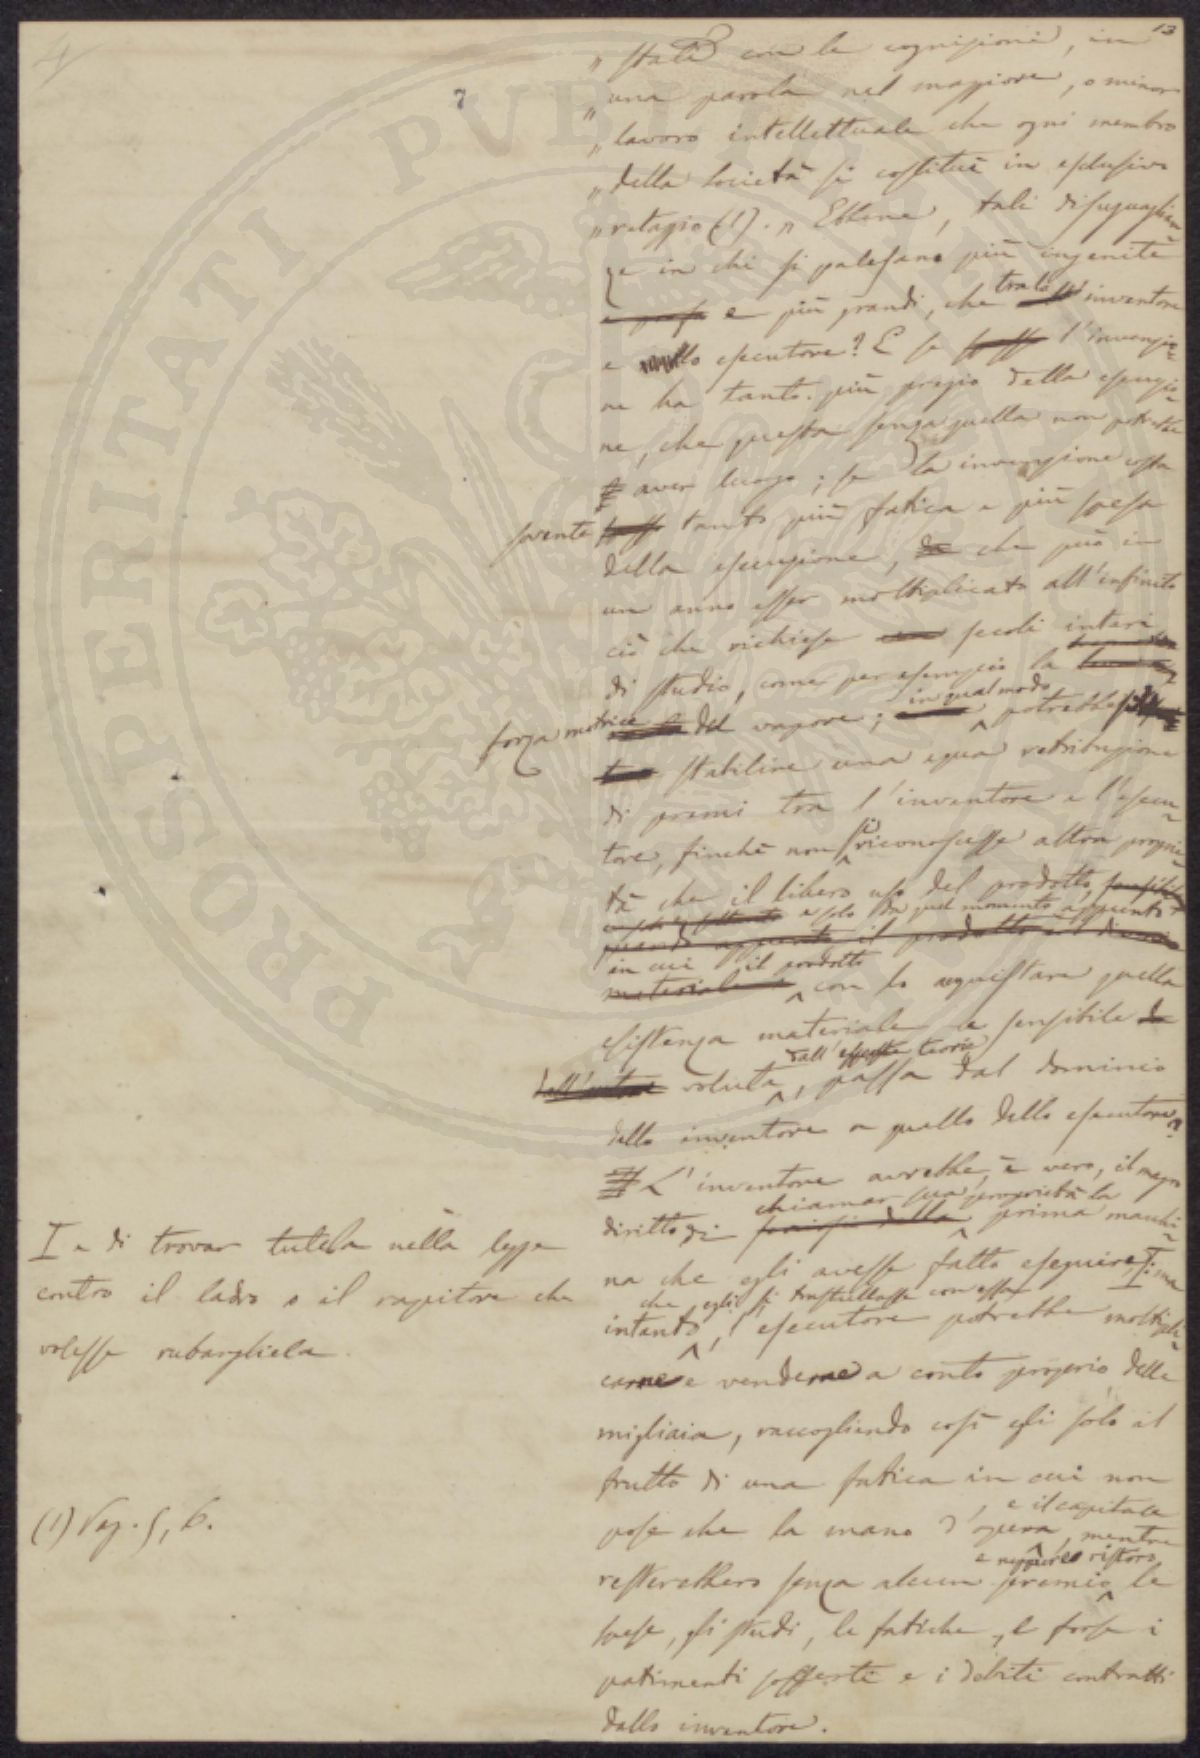 13
7
„ stale con le cognizioni, in
„ una parola nel maggiore, o minor
„ lavoro intellettuale che ogni membro
„ della società si costituì in esclusivo
„ retaggio (1). „ Ebbene, tali disuguaglian=
ze in chi si palesano più ingenite
e più grandi, che tra lo inventore
e lo esecutore? E se l'invenzio=
ne ha tanto più pregio della esecuzio=
ne, che questa senza quella non potrebbe
aver luogo; se la invenzione costa
sovente tanto più fatica e più spesa
della esecuzione, che può in
un anno esser moltiplicato all'infinito
ciò che richiese secoli interi
di studio, come per esempio la
forza motrice del vapore; in qual modo potrebbe
stabilire una equa retribuzione
di premi tra l'inventore e l'esecu=
tore, finchè non si riconoscesse altra proprie=
tà che il libero uso del prodotto,
e solo da quel momento appunto
in cui il prodotto con lo acquistare quella
esistenza materiale e sensibile
voluta dall'esposta teoria, passa dal dominio
dello inventore a quello dello esecutore?
L'inventore avrebbe, è vero, il magro
diritto di chiamar sua proprietà la prima macchi=
na che egli avesse fatto eseguire, I ma
intanto, che egli si trastullasse con essa, l'esecutore potrebbe moltipli=
carne e venderne a conto proprio delle
migliaia, raccogliendo così egli solo il
frutto di una fatica in cui non
pose che la mano d'opera, e il capitale, mentre
resterebbero senza alcun premio e neppure ristoro le
spese, gli studi, le fatiche, e forse i
patimenti sofferti e i debiti contratti
dallo inventore.
I e di trovar tutela nella legge
contro il ladro o il rapitore che
volesse rubargliela.
(1) Pag. 5, 6.
PROSPERITATI PVBLICAE